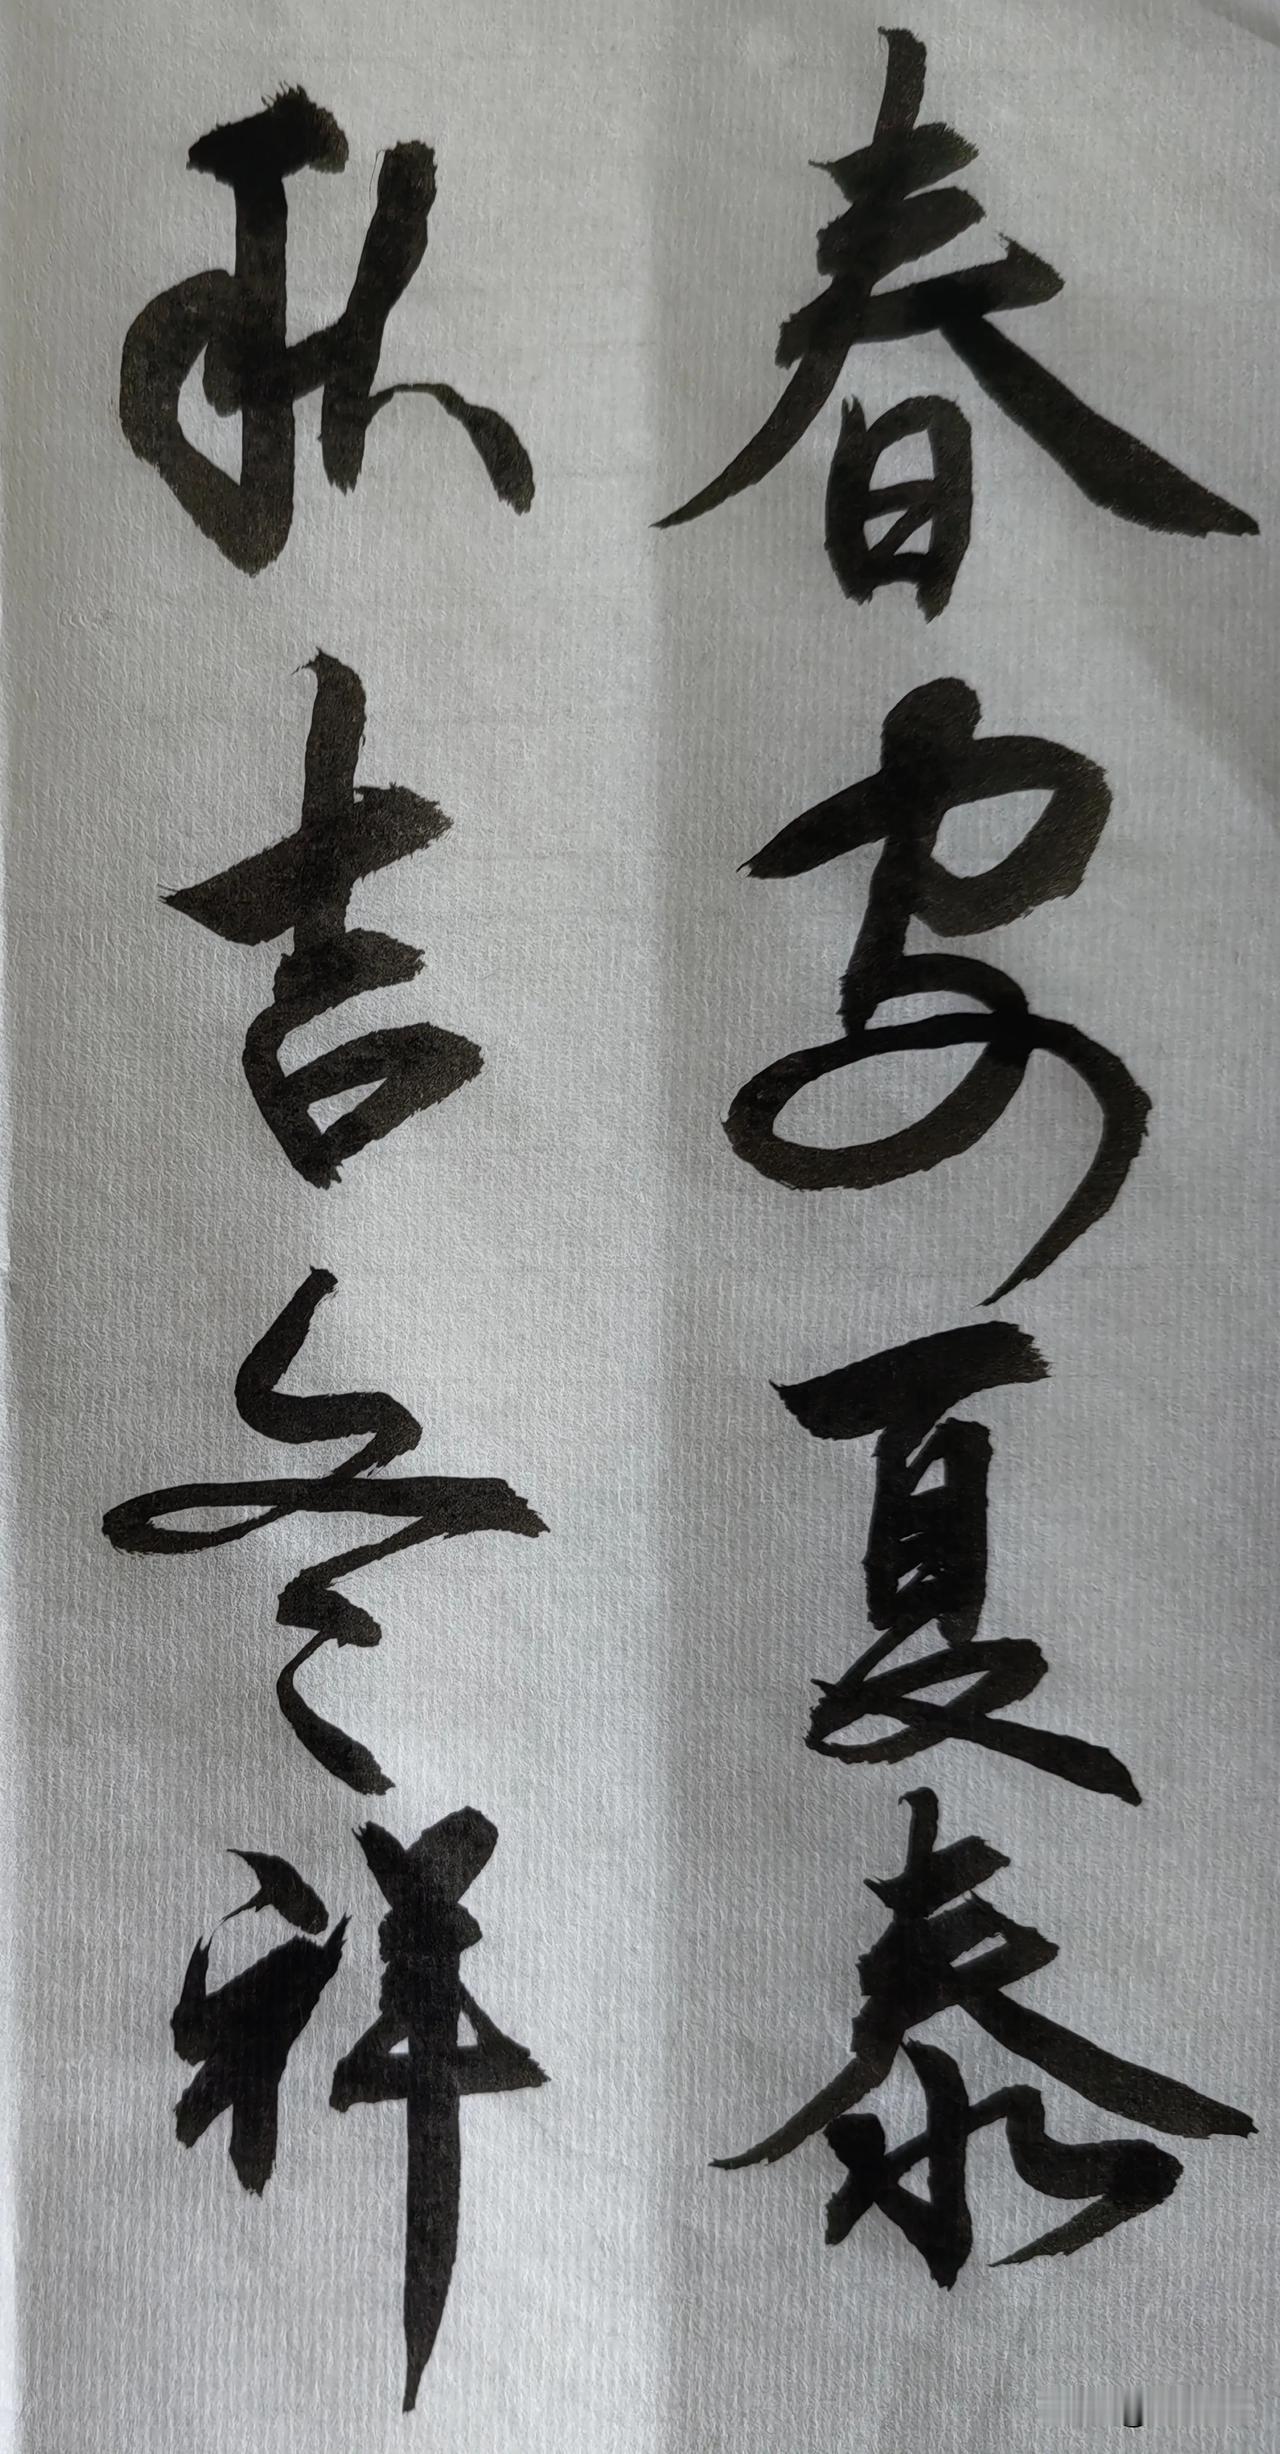 春安夏泰
秋吉冬祥